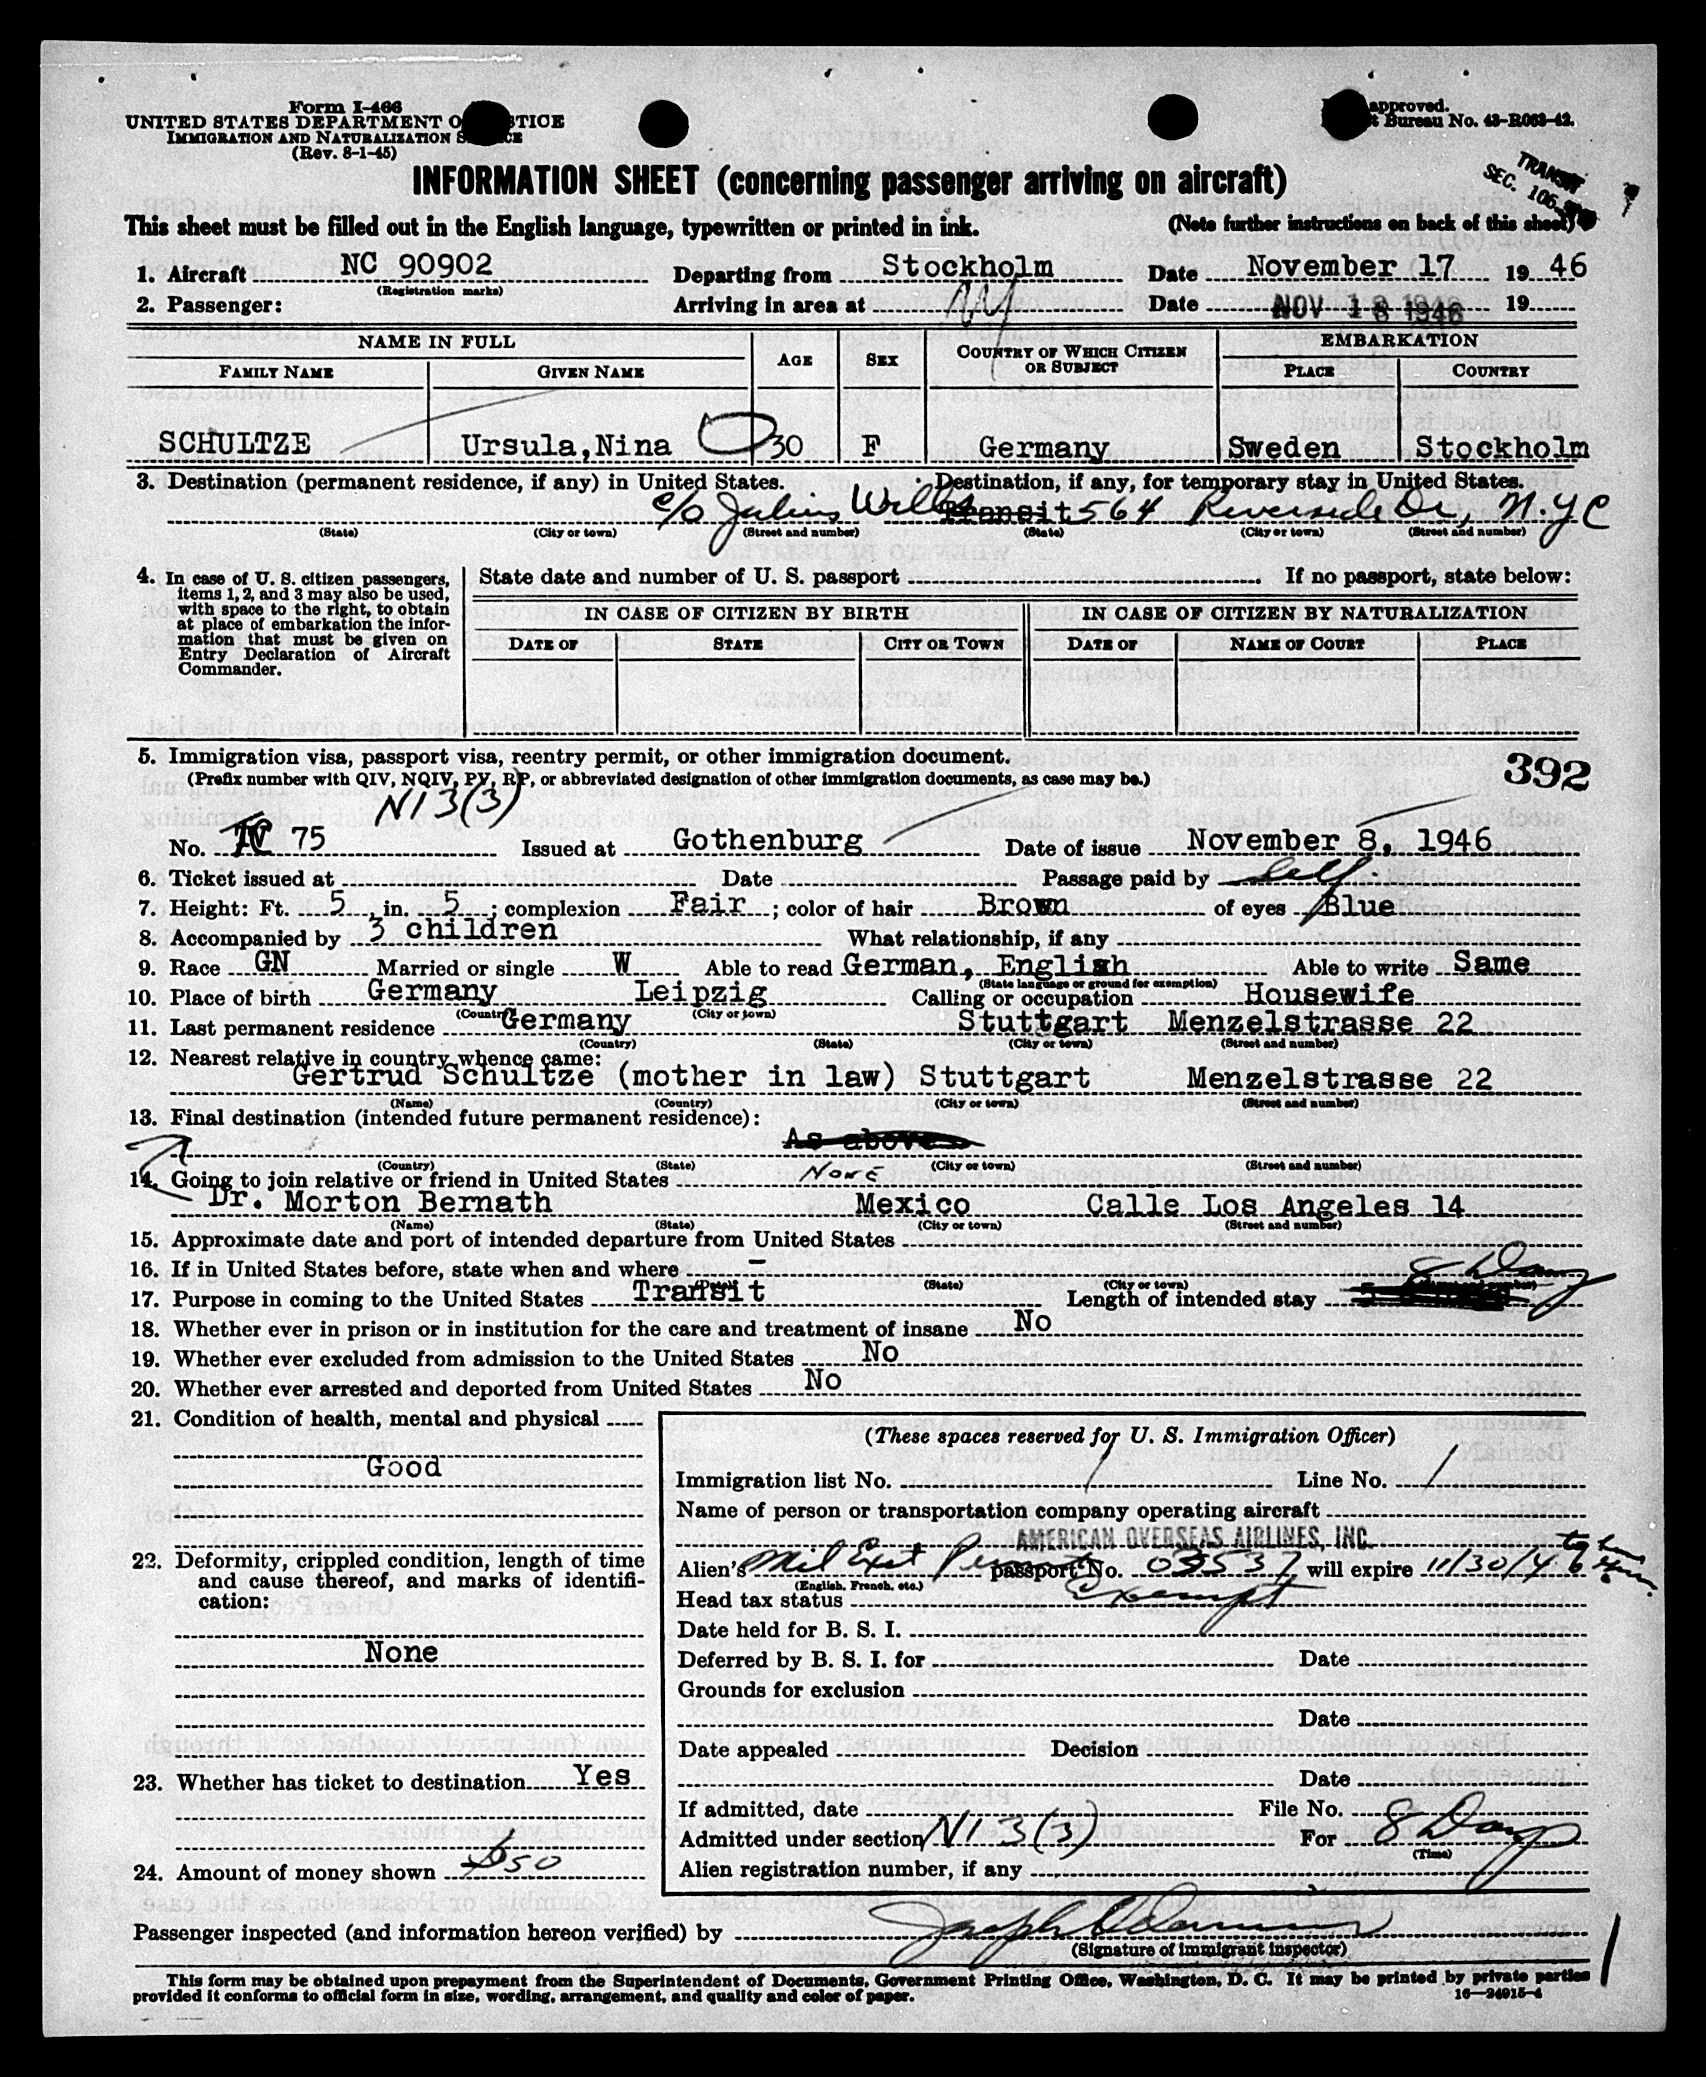 Form I-466
UNITED STATES DEPARTMENT O STICE
IMMIGRATION AND NATURALIZATION S CE
(Rev. 8-1-45)
approved.
t Bureau No. 43-R063-42.
INFORMATION SHEET (concerning passenger arriving on aircraft)
TRANSIT
SEC. 106.
This sheet must be filled out in the English language, typewritten or printed in ink.
(Note further instructions on back of this sheet)
1. Aircraft NC 90902 Departing from Stockholm Date November 17 19 46
(Registration marks)
2. Passenger: Arriving in area at NY Date NOV 18 1946 19
NAME IN FULL AGE SEX COUNTRY OF WHICH CITIZEN OR SUBJECT EMBARKATION
FAMILY NAME GIVEN NAME PLACE COUNTRY
SCHULTZE Ursula,Nina 30 F Germany Sweden Stockholm
3. Destination (permanent residence, if any) in United States. Destination, if any, for temporary stay in United States.
c/o Julius Wills Transit 564 Riverside Dr, N.Y.C
(State) (City or town) (Street and number) (State) (City or town) (Street and number)
4. In case of U. S. citizen passengers, items 1, 2, and 3 may also be used, with space to the right, to obtain at place of embarkation the information that must be given on Entry Declaration of Aircraft Commander.
State date and number of U. S. passport If no passport, state below:
IN CASE OF CITIZEN BY BIRTH IN CASE OF CITIZEN BY NATURALIZATION
DATE OF STATE CITY OR TOWN DATE OF NAME OF COURT PLACE
5. Immigration visa, passport visa, reentry permit, or other immigration document.
(Prefix number with QIV, NQIV, PV, RP, or abbreviated designation of other immigration documents, as case may be.)
392
N13(3)
No. 75 Issued at Gothenburg Date of issue November 8, 1946
6. Ticket issued at Date Passage paid by Self
7. Height: Ft. 5 in. 5 ; complexion Fair ; color of hair Brown of eyes Blue
8. Accompanied by 3 children What relationship, if any
9. Race GN Married or single W Able to read German, English Able to write Same
(State language or ground for exemption)
10. Place of birth Germany Leipzig Calling or occupation Housewife
(Country) (City or town)
11. Last permanent residence Germany Stuttgart Menzelstrasse 22
(Country) (State) (City or town) (Street and number)
12. Nearest relative in country whence came:
Gertrud Schultze (mother in law) Stuttgart Menzelstrasse 22
(Name) (Country) (City or town) (Street and number)
13. Final destination (intended future permanent residence):
As above
(Country) (State) (City or town) (Street and number)
14. Going to join relative or friend in United States NONE
Dr. Morton Bernath Mexico Calle Los Angeles 14
(Name) (State) (City or town) (Street and number)
15. Approximate date and port of intended departure from United States
16. If in United States before, state when and where -
(Date) (State) (City or town)
17. Purpose in coming to the United States Transit Length of intended stay 5 8 Days
18. Whether ever in prison or in institution for the care and treatment of insane No
19. Whether ever excluded from admission to the United States No
20. Whether ever arrested and deported from United States No
21. Condition of health, mental and physical
Good
22. Deformity, crippled condition, length of time and cause thereof, and marks of identification:
None
23. Whether has ticket to destination Yes
24. Amount of money shown $50
(These spaces reserved for U. S. Immigration Officer)
Immigration list No. 1 Line No. 1
Name of person or transportation company operating aircraft
AMERICAN OVERSEAS AIRLINES, INC.
Alien's Mil Exit Permit passport No. 03537 will expire 11/30/46
(English, French, etc.)
Head tax status Exempt
Date held for B. S. I.
Deferred by B. S. I. for Date
Grounds for exclusion
Date
Date appealed Decision
Date
If admitted, date File No.
Admitted under section N13(3) For 8 Days
(Time)
Alien registration number, if any
Passenger inspected (and information hereon verified) by
(Signature of immigrant inspector)
This form may be obtained upon prepayment from the Superintendent of Documents, Government Printing Office, Washington, D. C. It may be printed by private parties
provided it conforms to official form in size, wording, arrangement, and quality and color of paper.
16—24915-4